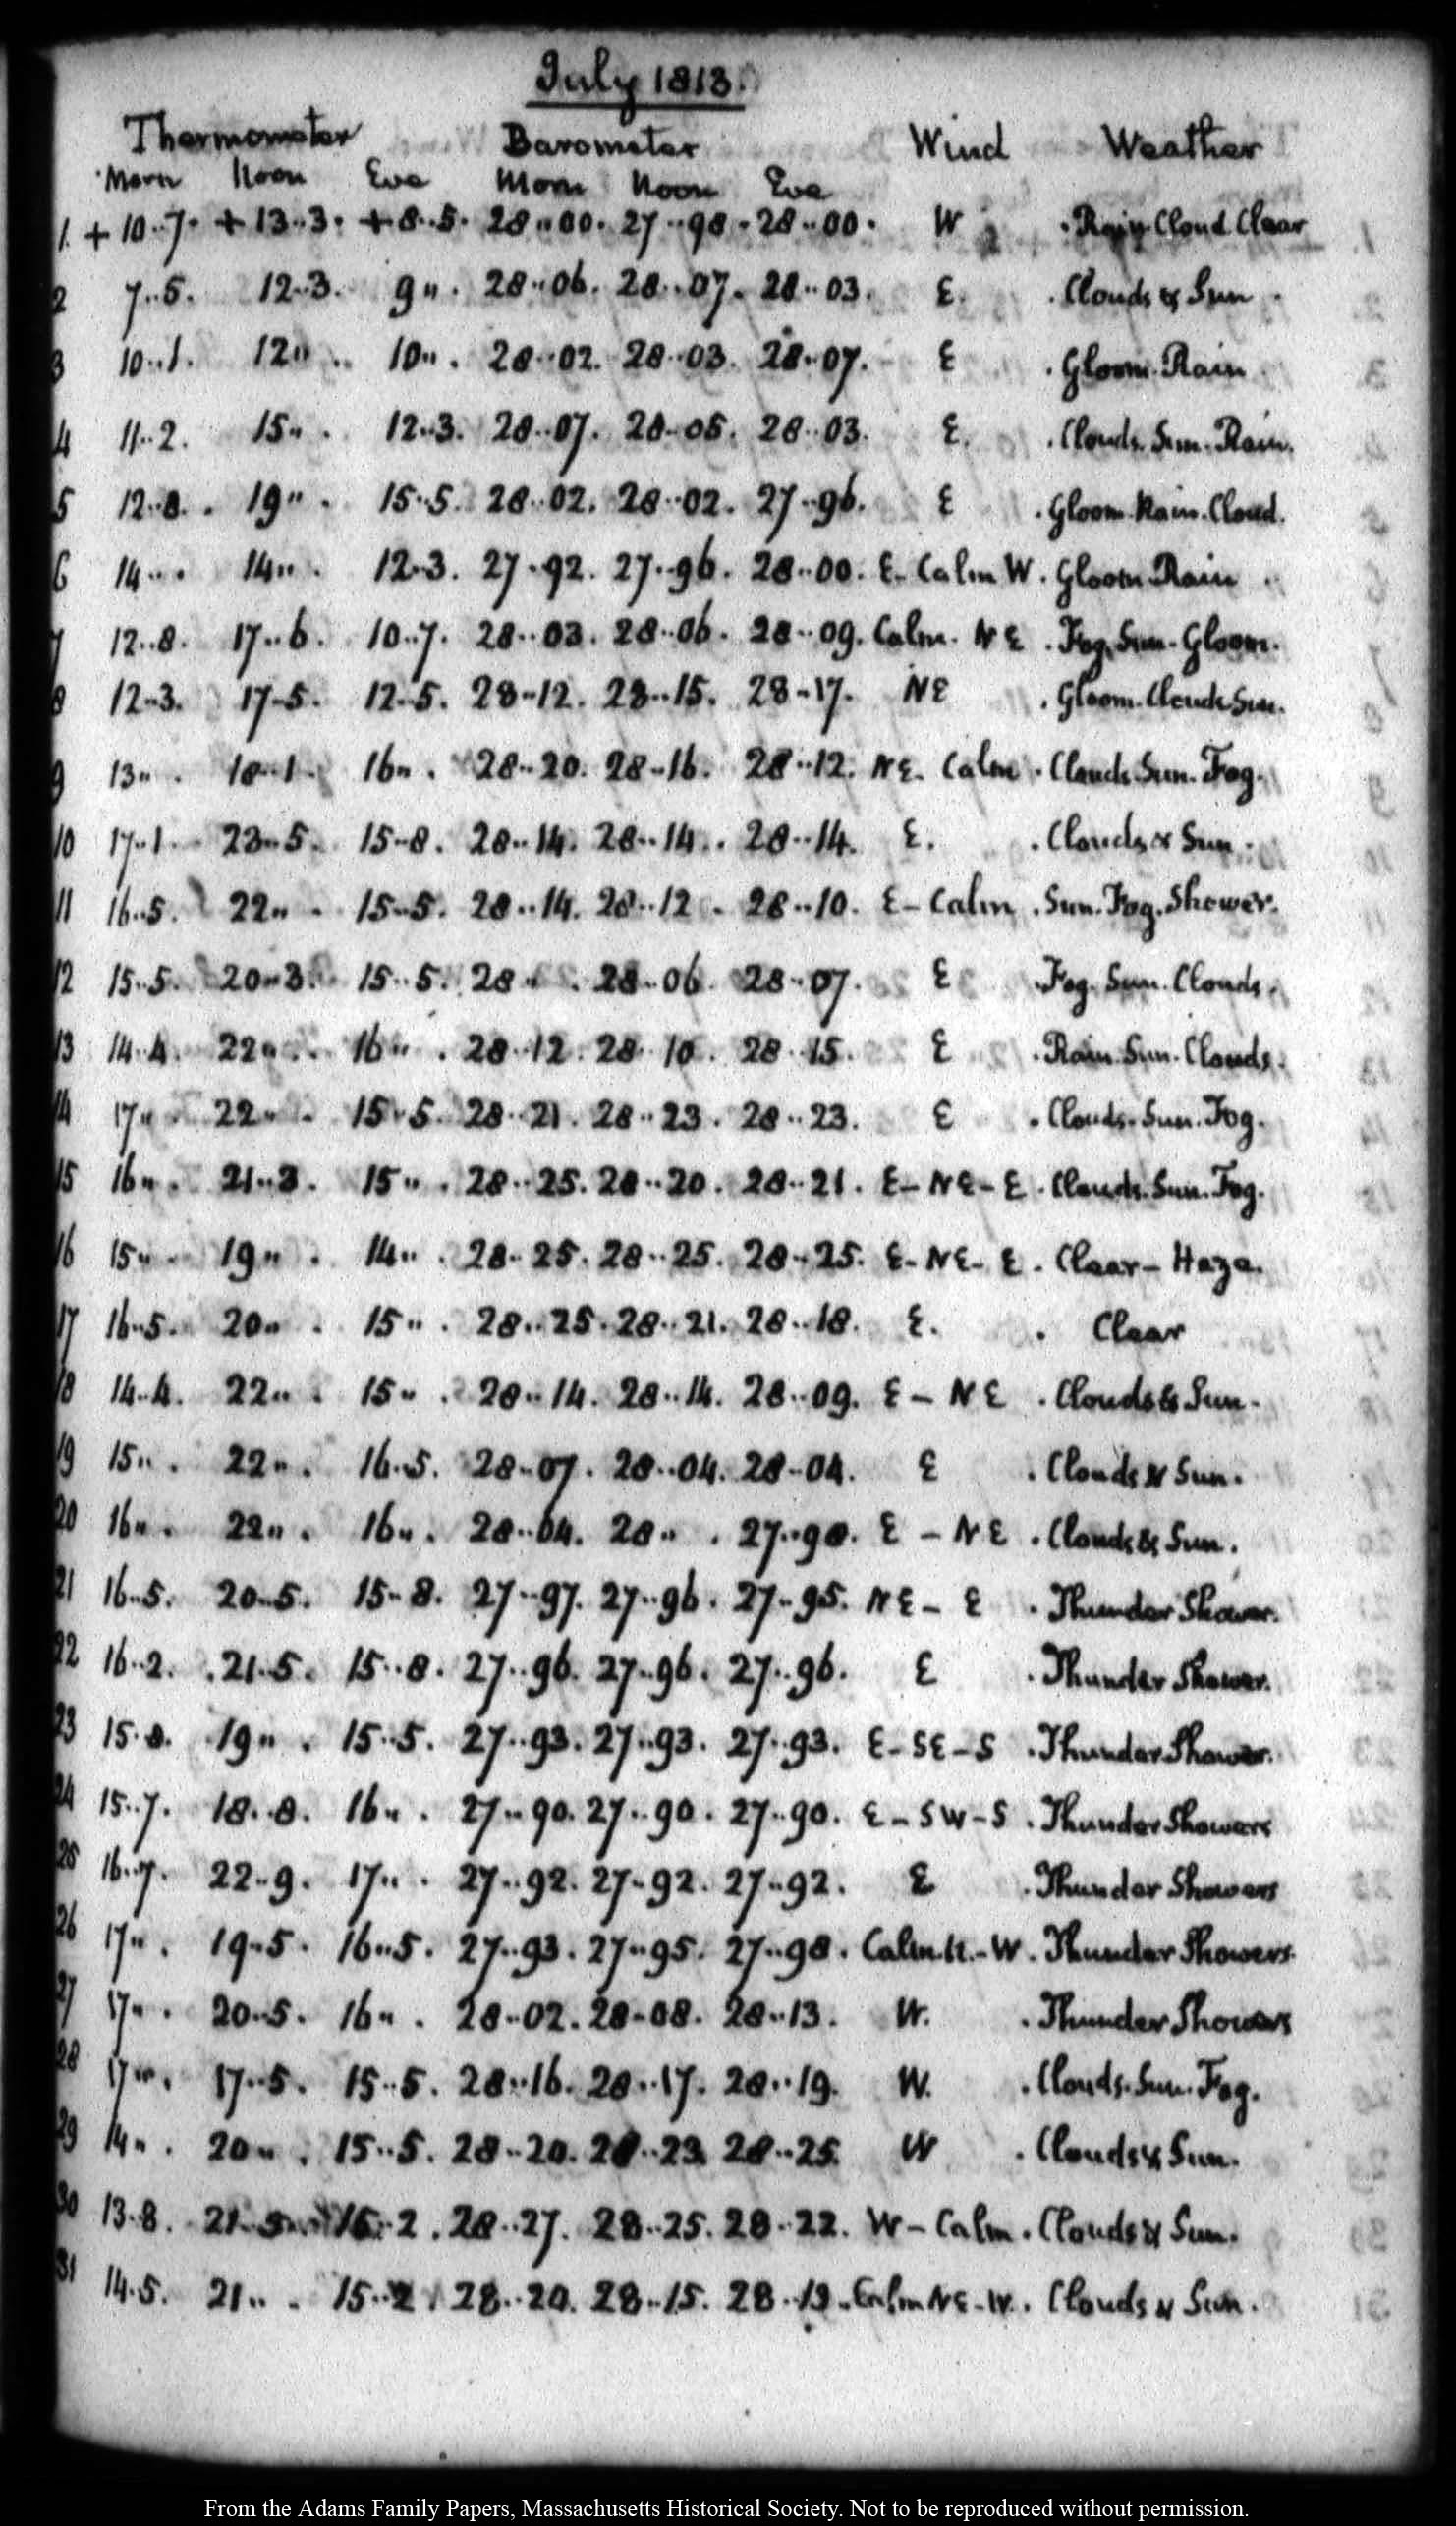 July 1813.
Thermometer Barometer Wind Weather
Morn Noon Eve Morn Noon Eve
1. + 10..7. + 13..3. + 8..5. 28..00. 27..98. 28..00. W . Rain Cloud Clear
2 7..5. 12..3. 9.. . 28..06. 28..07. 28..03. E. . Clouds & Sun .
3 10..1. 12.. .. 10.. . 28..02. 28..03. 28..07. E . Gloom. Rain
4 11..2. 15.. . 12..3. 28..07. 28..05. 28..03. E. . Clouds. Sun. Rain.
5 12..8. . 19.. . 15..5. 28..02. 28..02. 27..96. E . Gloom. Rain. Cloud.
6 14.. . 14.. . 12..3. 27..92. 27..96. 28..00. E- Calm W. Gloom. Rain .
7 12..8. 17..6. 10..7. 28..03. 28..06. 28..09. Calm. NE . Fog. Sun. Gloom.
8 12..3. 17..5. 12..5. 28..12. 28..15. 28..17. NE . Gloom. Clouds Sun.
9 13.. . 18..1. 16.. . 28..20. 28..16. 28..12. NE. Calm . Clouds Sun. Fog.
10 17..1. 23..5. 15..8. 28..14. 28..14.. 28..14. E. . Clouds & Sun.
11 16..5. 22.. . 15..5. 28..14. 28..12 . 28..10. E- Calm . Sun. Fog. Shower.
12 15..5. 20..3. 15..5. 28.. . 28..06. 28..07. E . Fog. Sun. Clouds.
13 14..4. 22.. .. 16.. . 28..12. 28..10. 28..15. E . Rain. Sun. Clouds.
14 17.. . 22.. . 15..5. 28..21. 28..23. 28..23. E . Clouds. Sun. Fog.
15 16.. . 21..3. 15.. . 28..25. 28..20. 28..21. E- NE- E . Clouds. Sun. Fog.
16 15.. . 19.. . 14.. . 28..25. 28..25. 28..25. E- NE- E . Clear- Haze.
17 16..5. 20.. . 15.. . 28..25. 28..21. 28..18. E. . Clear
18 14..4. 22.. . 15.. . 28..14. 28..14. 28..09. E - NE . Clouds & Sun.
19 15.. . 22.. . 16..5. 28..07. 28..04. 28..04. E . Clouds & Sun.
20 16.. . 22.. . 16.. . 28..04. 28.. . 27..98. E - NE . Clouds & Sun.
21 16..5. 20..5. 15..8. 27..97. 27..96. 27..95. NE - E . Thunder Shower.
22 16..2. 21..5. 15..8. 27..96. 27..96. 27..96. E . Thunder Shower.
23 15..8. 19.. . 15..5. 27..93. 27..93. 27..93. E- SE-S . Thunder Shower.
24 15..7. 18..8. 16.. . 27..90. 27..90. 27..90. E - SW-S . Thunder Showers
25 16..7. 22..9. 17.. . 27..92. 27..92. 27..92. E . Thunder Showers
26 17.. . 19..5. 16..5. 27..93. 27..95. 27..98. Calm. -W. Thunder Showers
27 17.. . 20..5. 16.. . 28..02. 28..08. 28..13. W. . Thunder Showers
28 17.. . 17..5. 15..5. 28..16. 28..17. 28..19. W. . Clouds. Sun. Fog.
29 14.. . 20.. . 15..5. 28..20. 28..23. 28..25. W . Clouds & Sun.
30 13..8. 21.. 15..2. 28..27. 28..25. 28..22. W - Calm . Clouds & Sun.
31 14..5. 21.. . 15..2 28..20. 28..15. 28..13. Calm NE-W. Clouds & Sun.
From the Adams Family Papers, Massachusetts Historical Society. Not to be reproduced without permission.